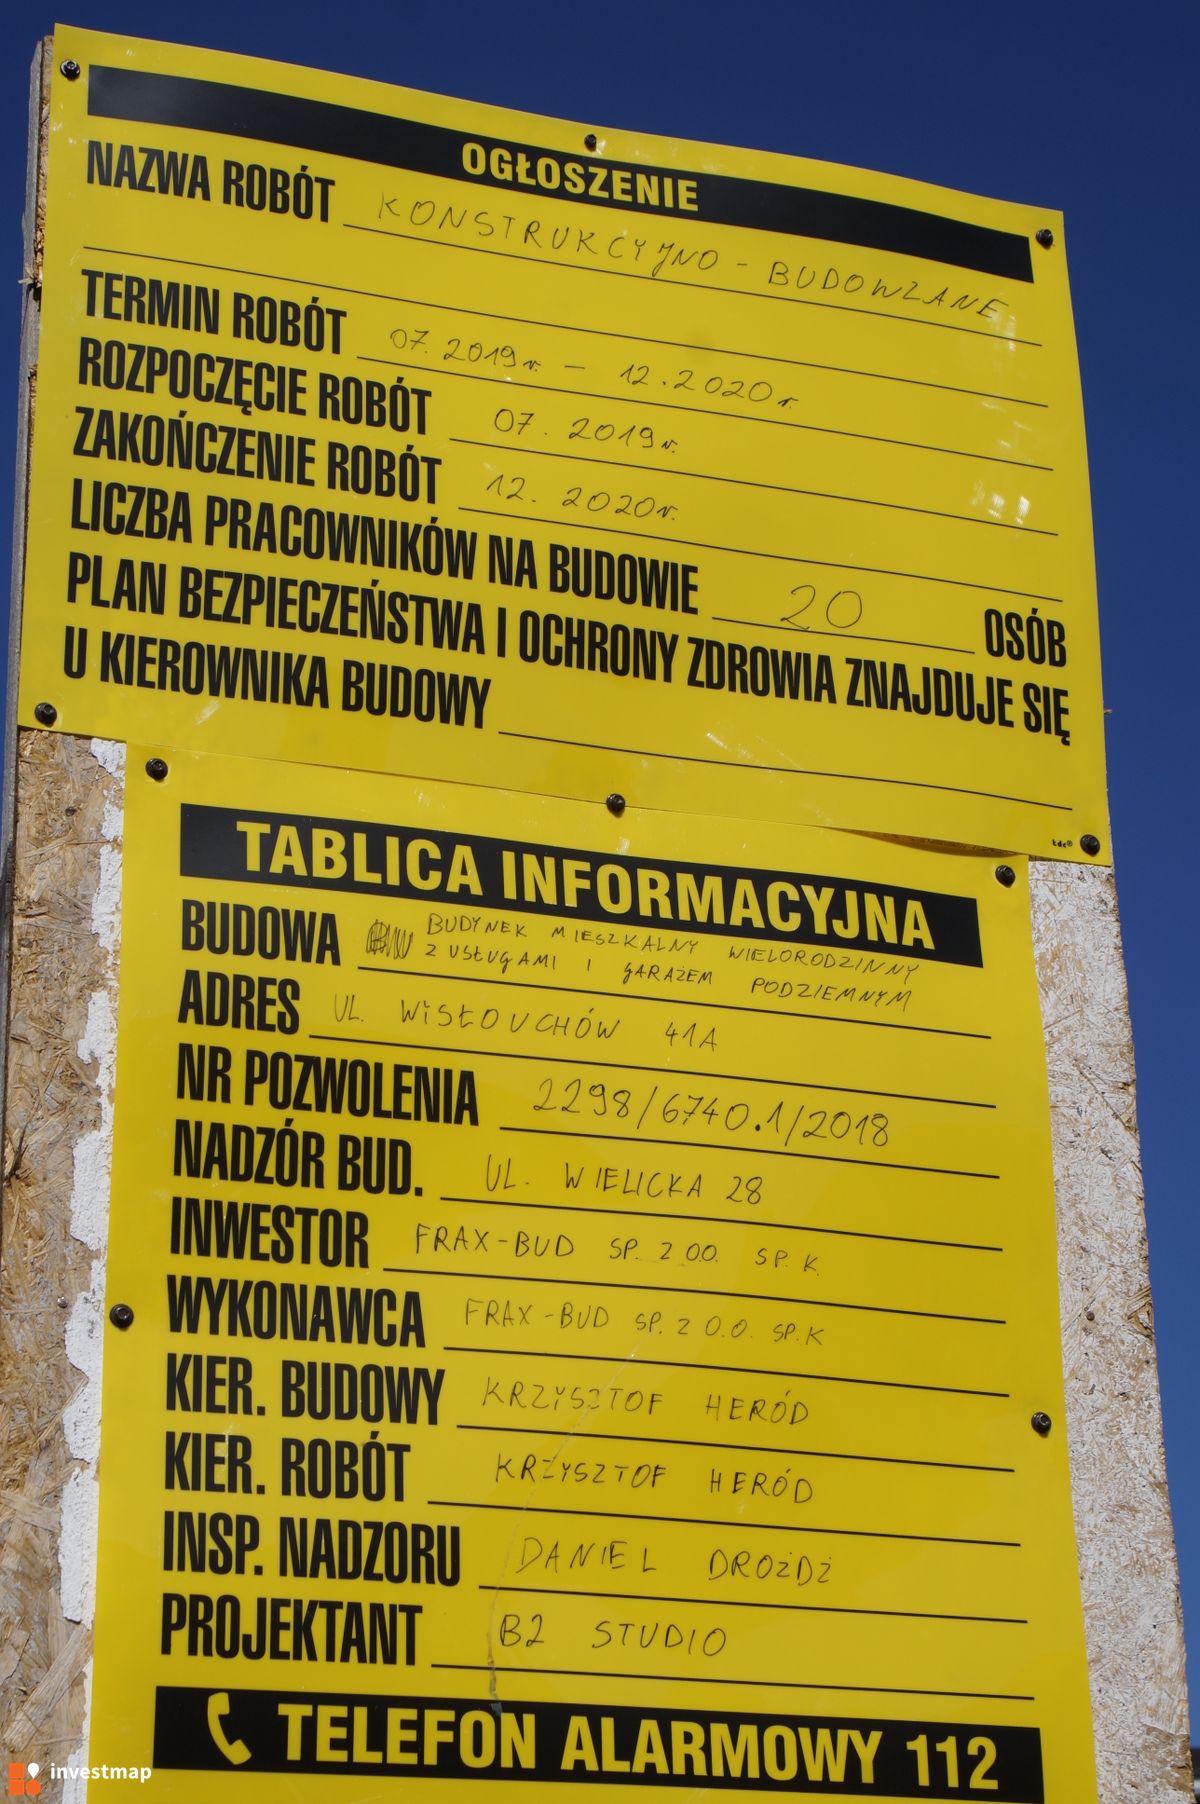 OGŁOSZENIE
NAZWA ROBÓT KONSTRUKCYJNO - BUDOWLANE
TERMIN ROBÓT 07.2019r. - 12.2020r.
ROZPOCZĘCIE ROBÓT 07.2019r.
ZAKOŃCZENIE ROBÓT 12.2020r.
LICZBA PRACOWNIKÓW NA BUDOWIE 20 OSÓB
PLAN BEZPIECZEŃSTWA I OCHRONY ZDROWIA ZNAJDUJE SIĘ
U KIEROWNIKA BUDOWY
tdc®
TABLICA INFORMACYJNA
BUDOWA BUDYNEK MIESZKALNY WIELORODZINNY
Z USŁUGAMI I GARAŻEM PODZIEMNYM
ADRES UL. WISŁOUCHÓW 41A
NR POZWOLENIA 2298/6740.1/2018
NADZÓR BUD. UL. WIELICKA 28
INWESTOR FRAX-BUD SP. Z O.O. SP. K.
WYKONAWCA FRAX-BUD SP. Z O.O. SP.K
KIER. BUDOWY KRZYSZTOF HERÓD
KIER. ROBÓT KRZYSZTOF HERÓD
INSP. NADZORU DANIEL DROŻDŻ
PROJEKTANT B2 STUDIO
TELEFON ALARMOWY 112
investmap